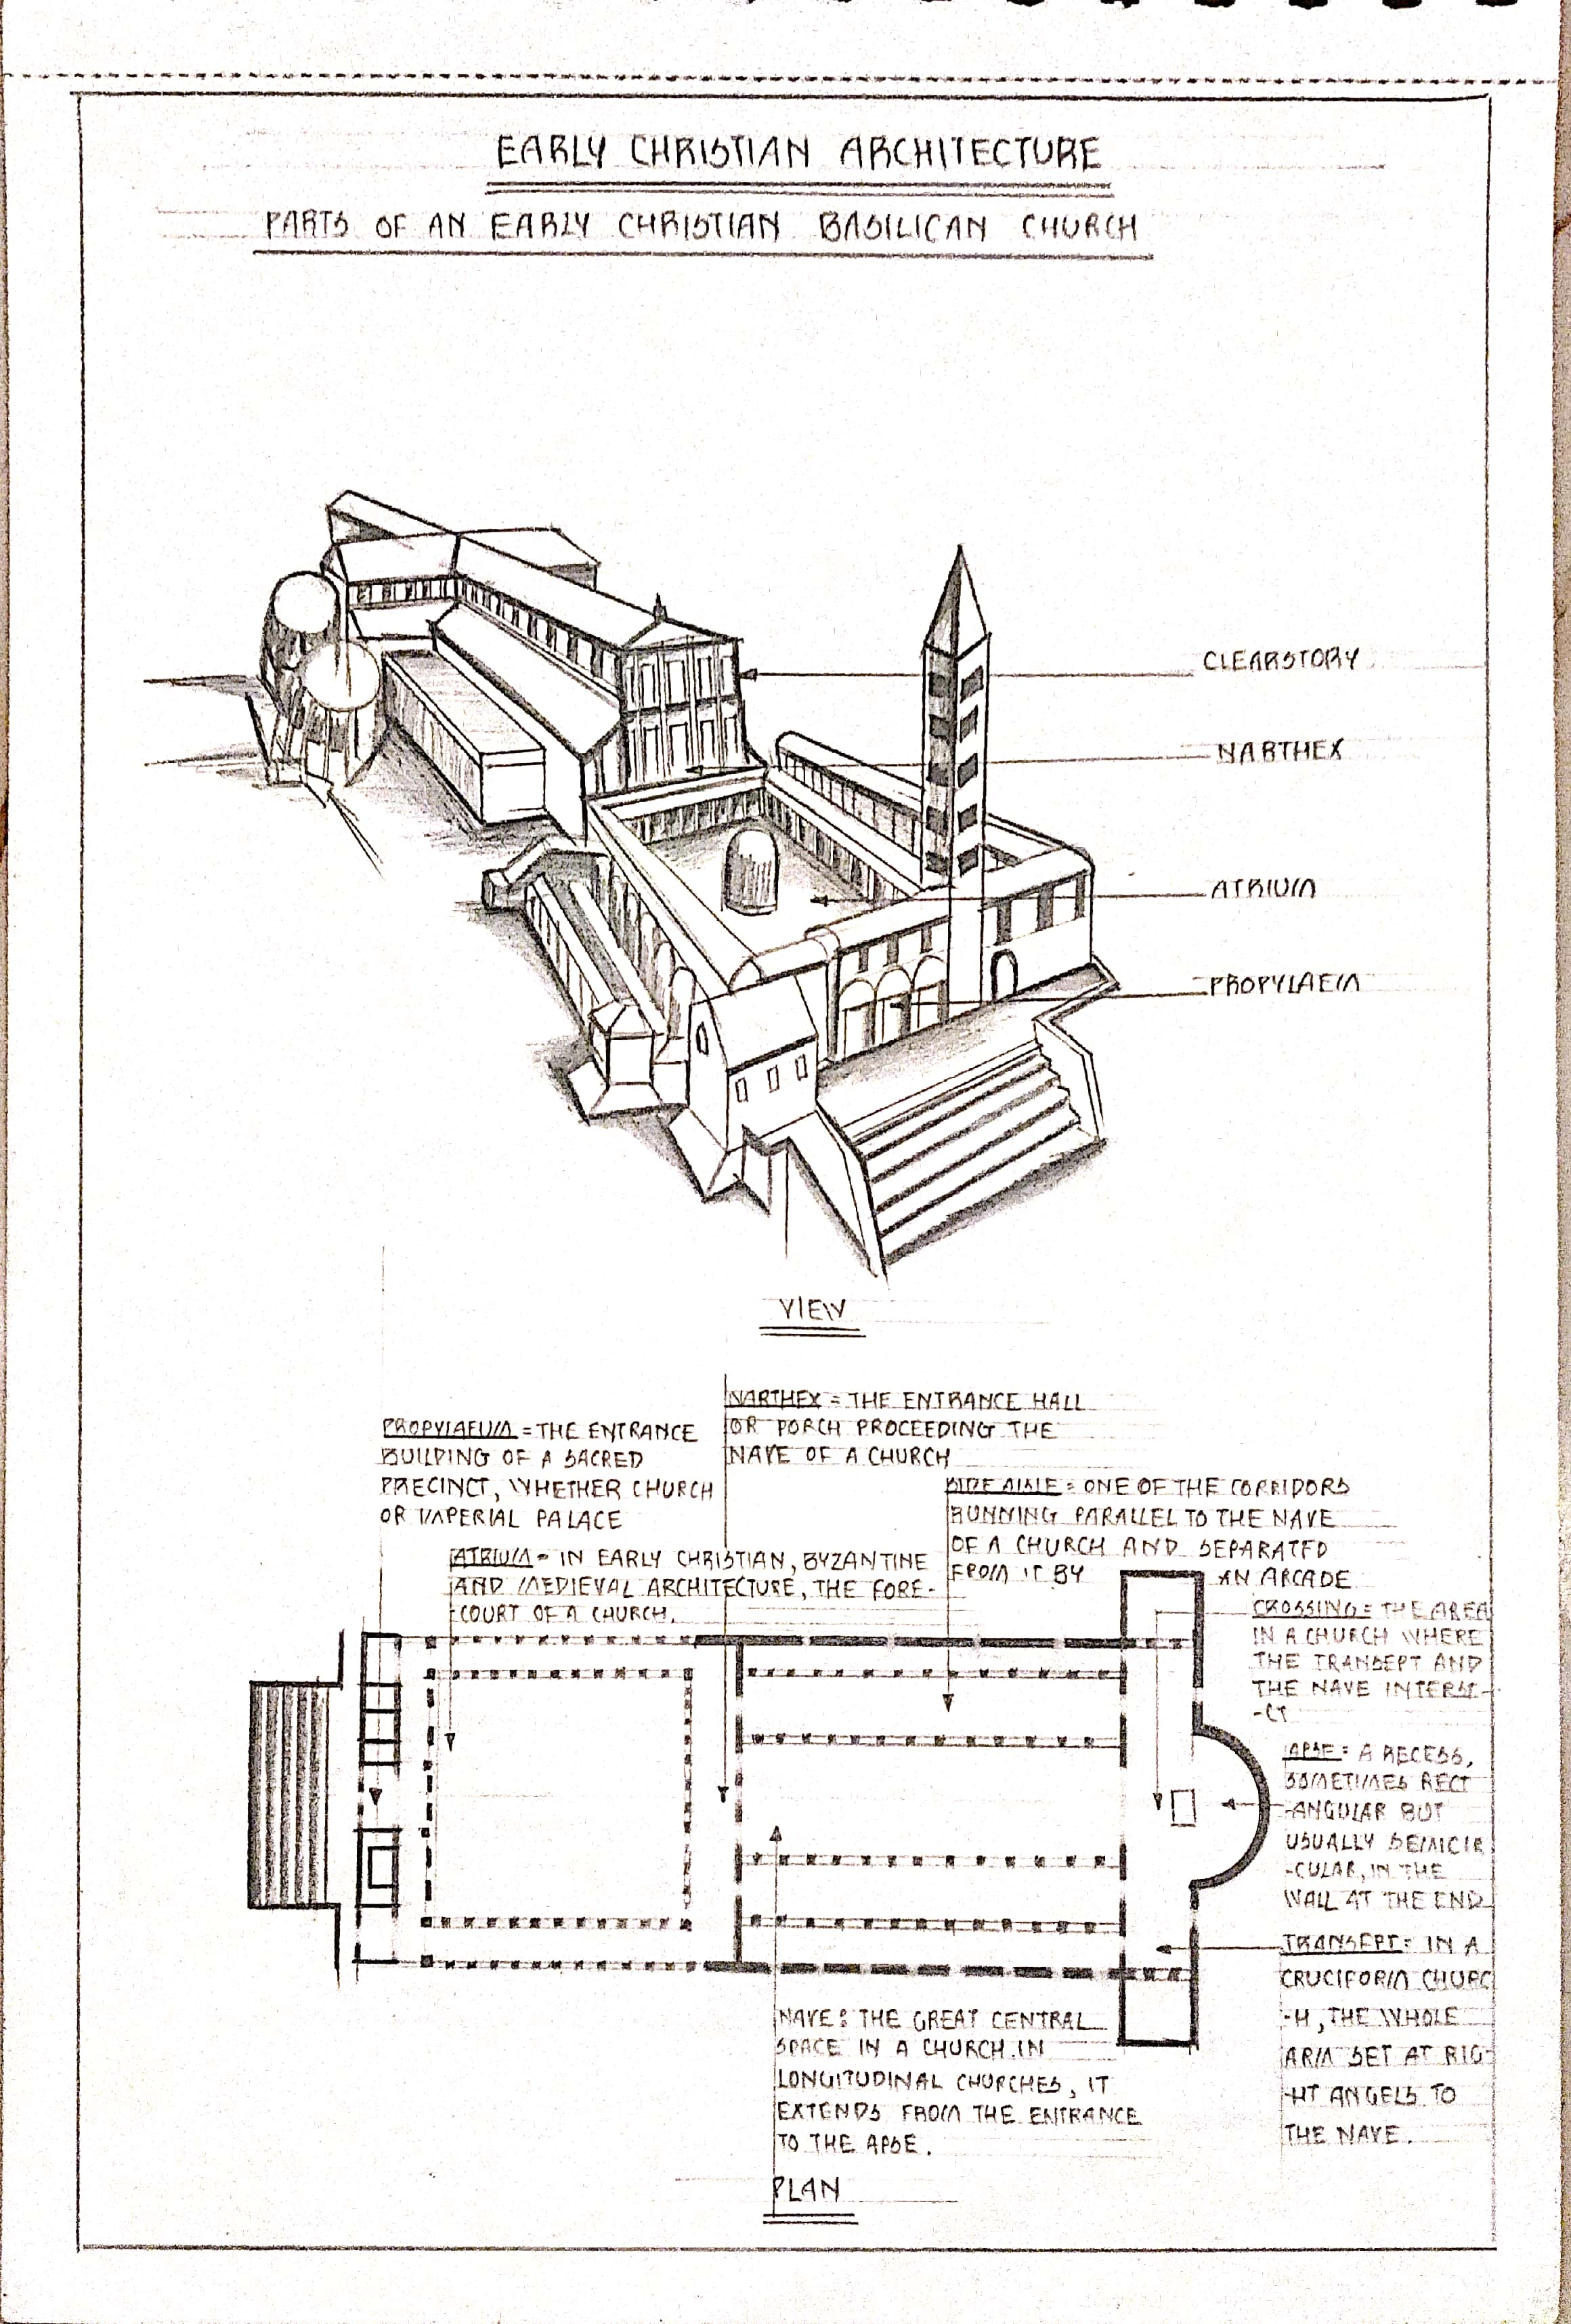 EARLY CHRISTIAN ARCHITECTURE
PARTS OF AN EARLY CHRISTIAN BASILICAN CHURCH
CLEARSTORY
NARTHEX
ATRIUM
PROPYLAEM
VIEW
NARTHEX = THE ENTRANCE HALL
OR PORCH PROCEEDING THE
NAVE OF A CHURCH
PROPYLAEUM = THE ENTRANCE
BUILDING OF A SACRED
PRECINCT, WHETHER CHURCH
OR IMPERIAL PALACE
SIDE AISLE = ONE OF THE CORRIDORS
RUNNING PARALLEL TO THE NAVE
OF A CHURCH AND SEPARATED
FROM IT BY AN ARCADE
ATRIUM = IN EARLY CHRISTIAN, BYZANTINE
AND MEDIEVAL ARCHITECTURE, THE FORE-
COURT OF A CHURCH.
CROSSING = THE AREA
IN A CHURCH WHERE
THE TRANSEPT AND
THE NAVE INTERSE-
-CT
APSE = A RECESS,
SOMETIMES RECT
-ANGULAR BUT
USUALLY SEMICIR
-CULAR, IN THE
WALL AT THE END
TRANSEPT = IN A
CRUCIFORM CHURC
-H, THE WHOLE
ARM SET AT RIG-
-HT ANGELS TO
THE NAVE.
NAVE : THE GREAT CENTRAL
SPACE IN A CHURCH. IN
LONGITUDINAL CHURCHES, IT
EXTENDS FROM THE ENTRANCE
TO THE APSE.
PLAN